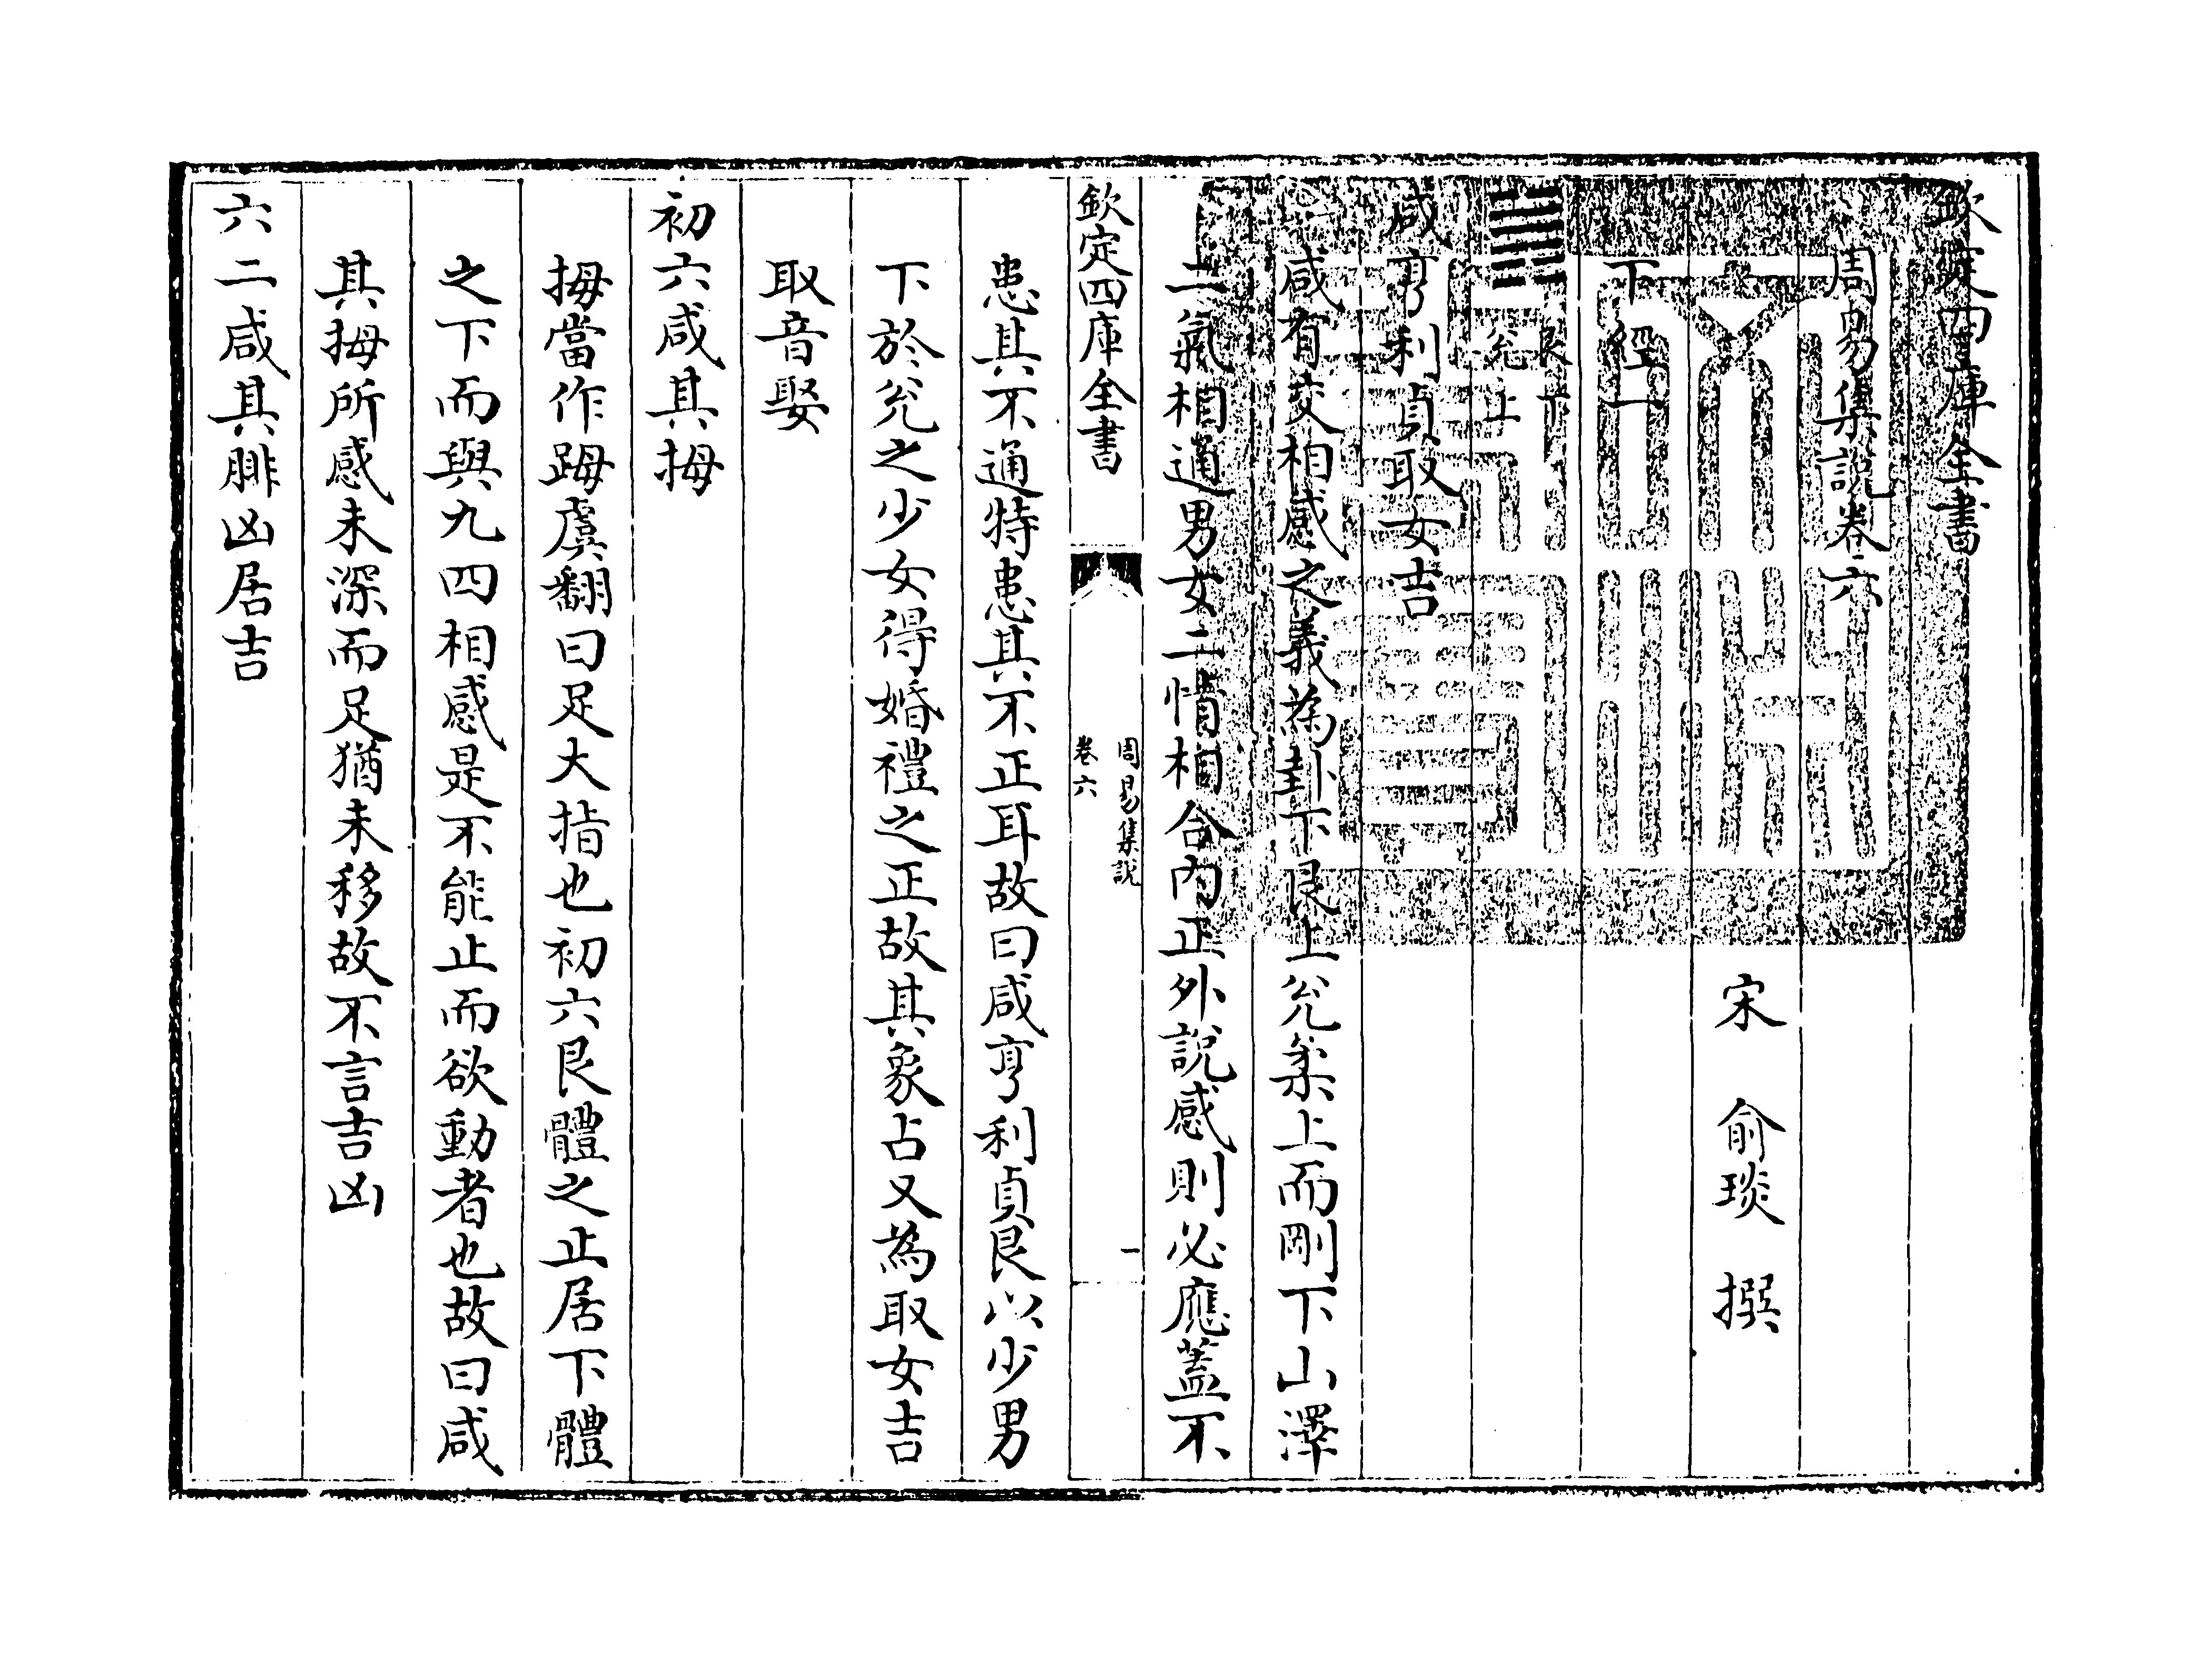 欽定四庫全書
周易集說卷六
宋 俞琰 撰
下經一
艮下
兌上
咸亨利貞取女吉
咸有交相感之義為卦下艮上兌柔上而剛下山澤
二氣相通男女二情相合内正外說感則必應蓋不
欽定四庫全書
周易集說
卷六
一
患其不通特患其不正耳故曰咸亨利貞艮以少男
下於兌之少女得婚禮之正故其象占又為取女吉
取音娶
初六咸其拇
拇當作踇虞翻曰足大指也初六艮體之止居下體
之下而與九四相感是不能止而欲動者也故曰咸
其拇所感未深而足猶未移故不言吉凶
六二咸其腓凶居吉